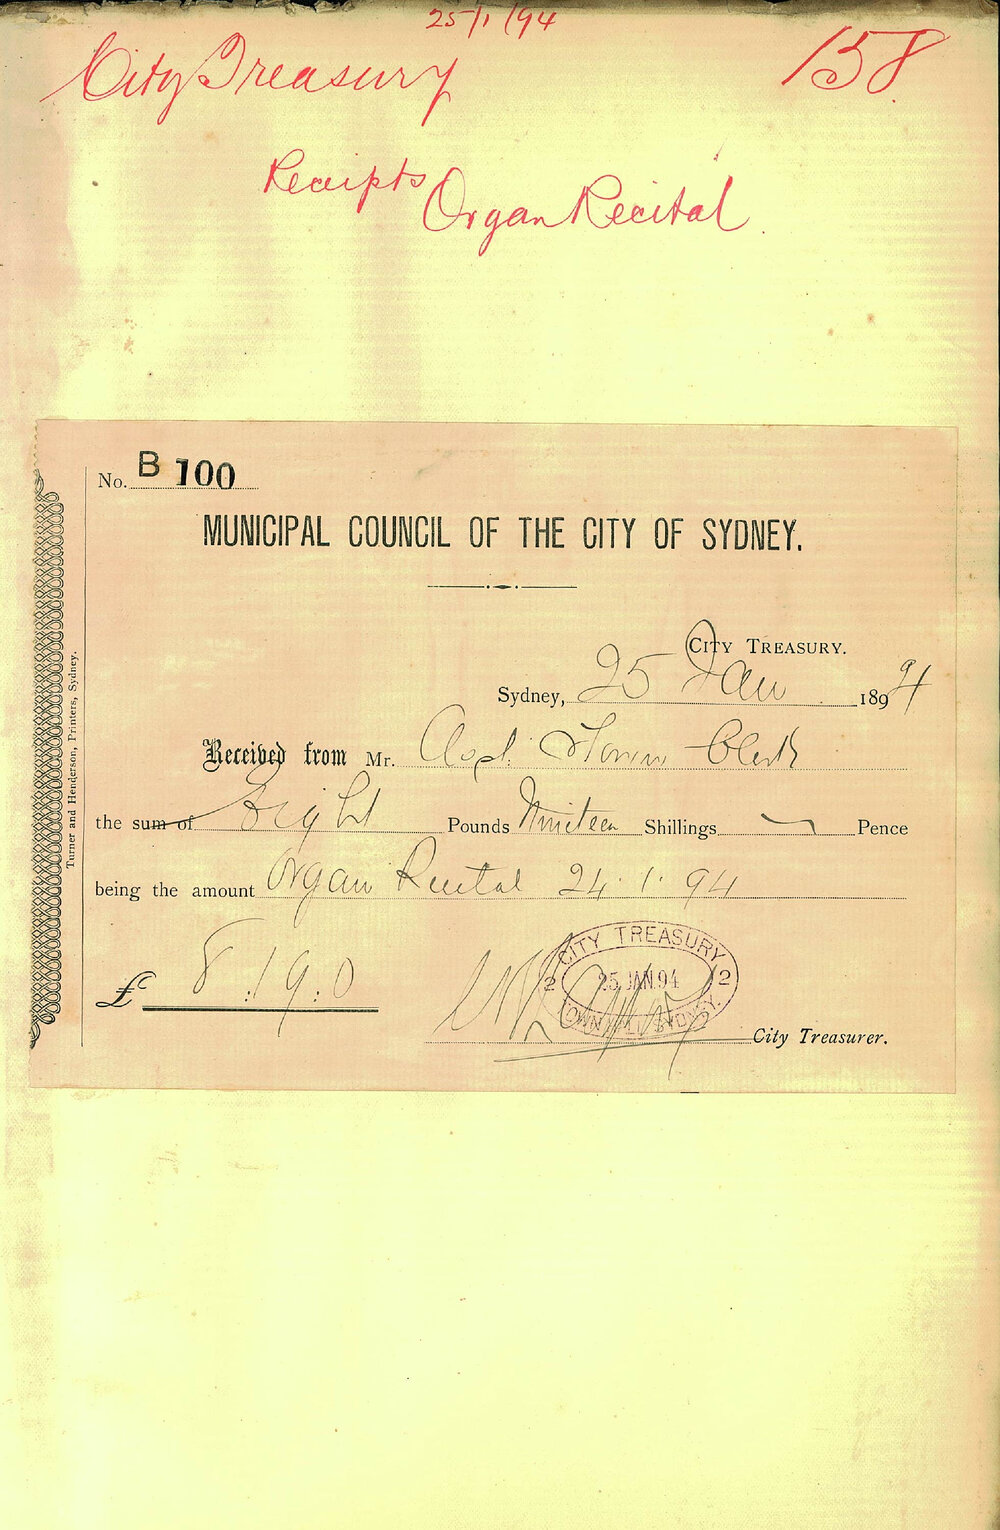 25/1/94
City Treasury
158
Receipts
Organ Recital
No. B 100
MUNICIPAL COUNCIL OF THE CITY OF SYDNEY.
CITY TREASURY.
Sydney, 25 Jan 1894
Received from Mr. Town Clerk
the sum of Eight Pounds Nineteen Shillings — Pence
being the amount Organ Recital 24.1.94
£ 8.19.0
CITY TREASURY
2 25.JAN.94 2
TOWN HALL SYDNEY.
City Treasurer.
Turner and Henderson, Printers, Sydney.